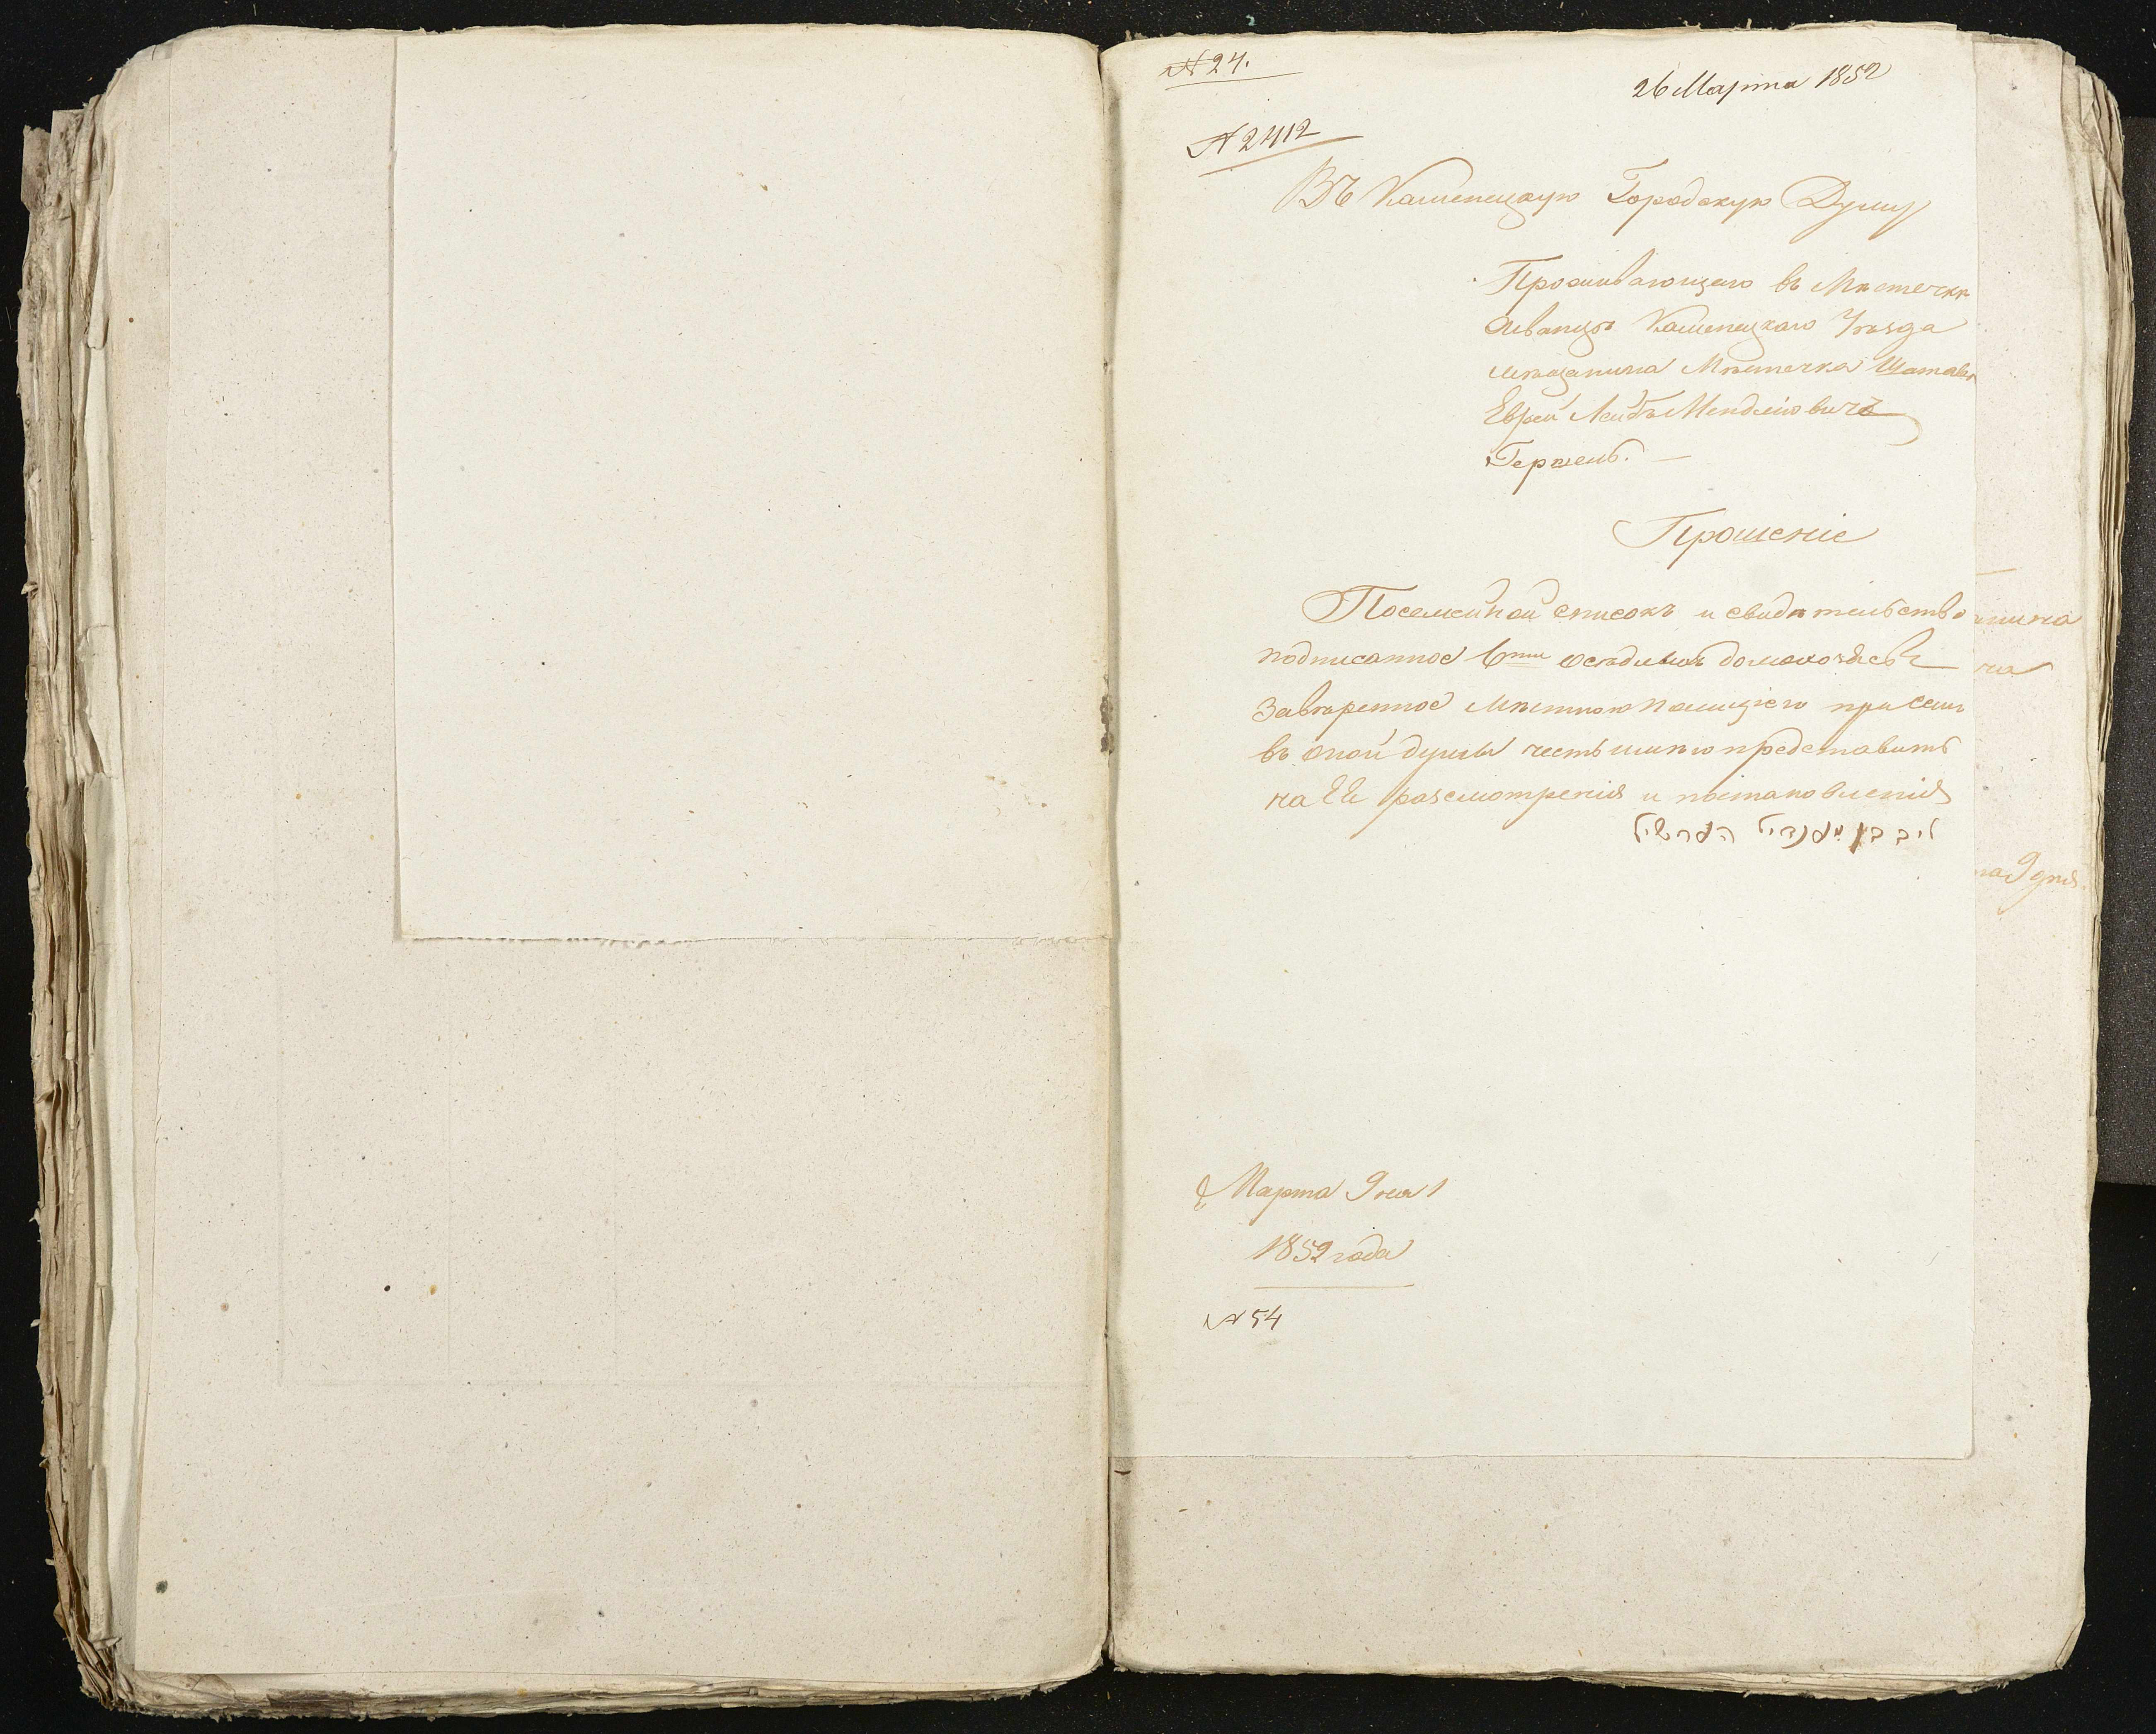 № 24.
26 Марта 1852
№ 2412
Въ Каменецкую Городскую Думу
Проживающаго въ Мѣстечкѣ
Жванцѣ Каменецкаго Уѣзда
мѣщанина Мѣстечка Шатавы
Еврея Лейбъ Мендліовичъ
Гершель. —
Прошеніе
Посемейной списокъ и свидѣтельство
подписанное 6ти осѣдлыхъ домохозяевъ
завѣренное мѣстною полициею при семъ
въ оной думы честь имѣю представить
на Ее розсмотренія и постановленія
ליב בן מענדיל הערשיל
Марта 9 дня
1852 года
№ 54
на 9 дня